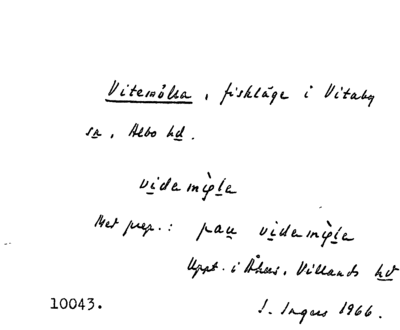 Vitemölla, fiskläge i Vitaby
sn, Albo hd.
videmỳla
Med prep.: pau videmỳla
Uppt. i Åhus, Villands hd
10043. I. Ingers 1966.